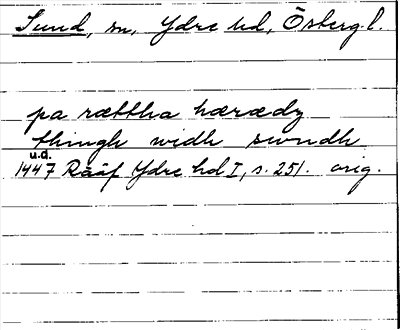 Sund, sn, Ydre hd, Östergl.
pa rættha hærædz
thingh widh swndh
u.d.
1447 Rääf Ydre hd I, s. 251. orig.